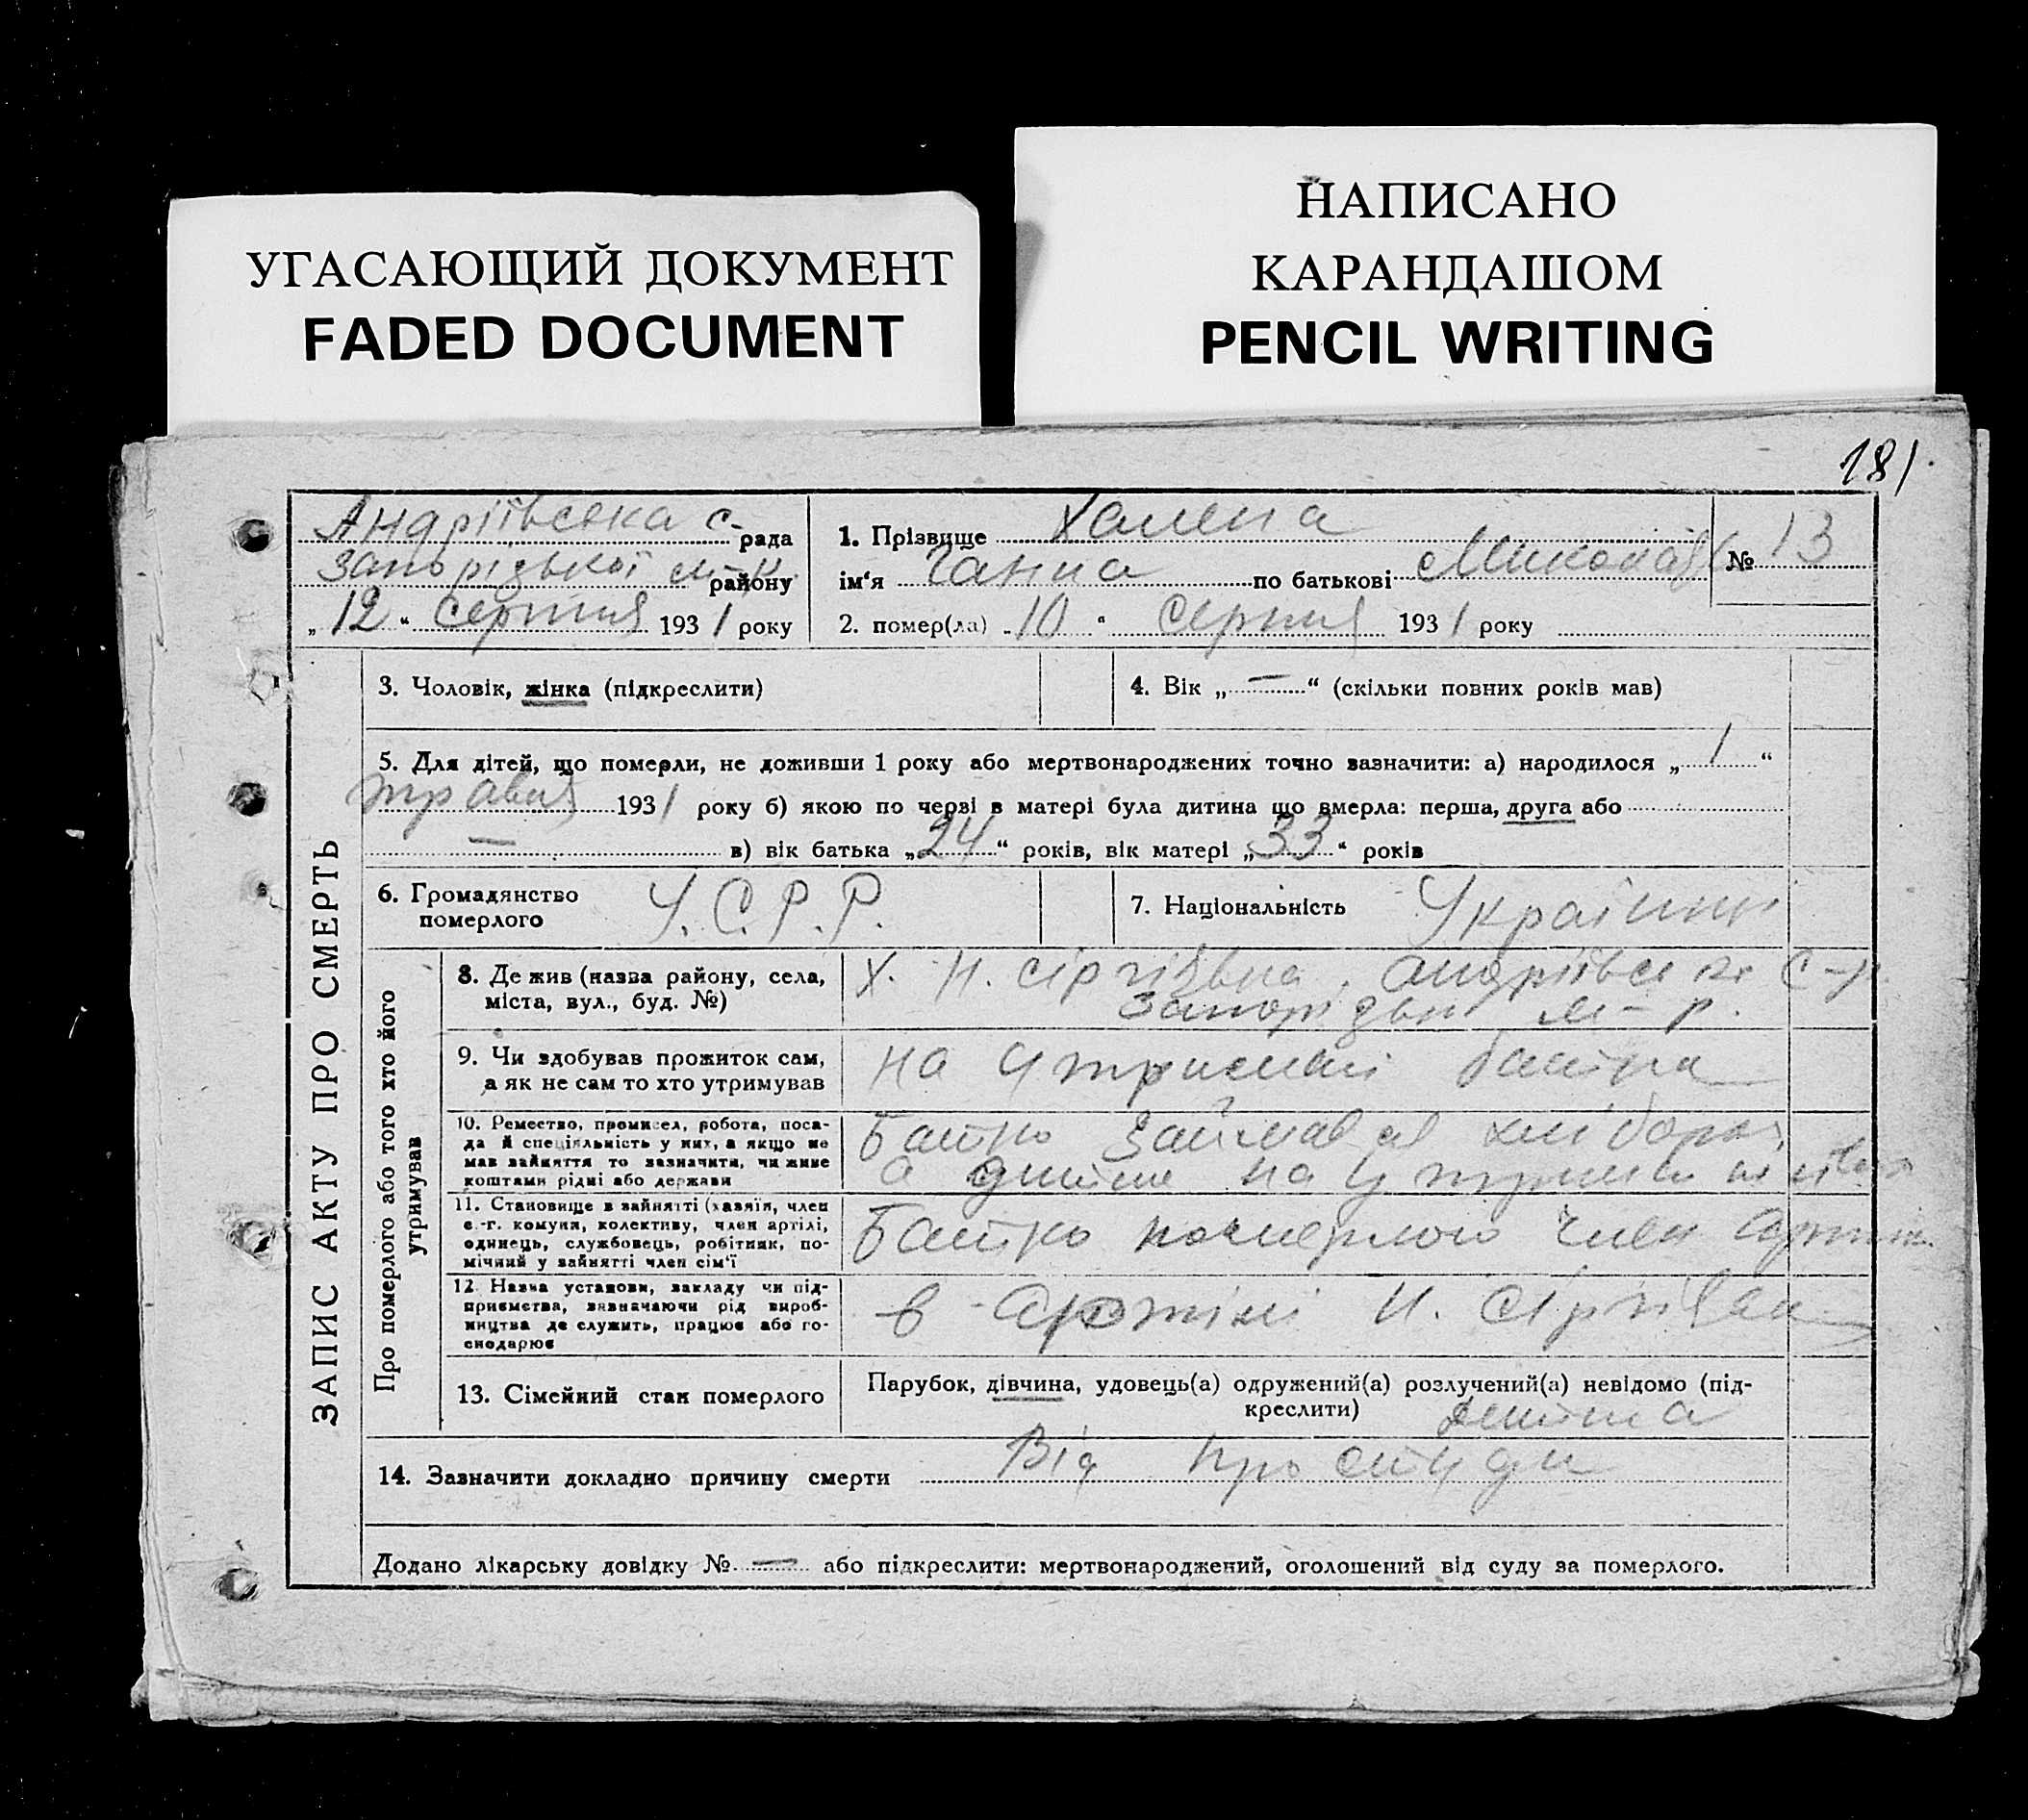 УГАСАЮЩИЙ ДОКУМЕНТ
FADED DOCUMENT
НАПИСАНО
КАРАНДАШОМ
PENCIL WRITING
181
Андріївська с- рада
Запорізької м-р. району
„12" серпня 1931 року
1. Прізвище Халена
ім'я Ганна по батькові Микола
№ 13
2. помер(ла) „10" серпня 1931 року
ЗАПИС АКТУ ПРО СМЕРТЬ
3. Чоловік, жінка (підкреслити)
4. Вік „—" (скільки повних років мав)
5. Для дітей, що померли, не доживши 1 року або мертвонароджених точно зазначити: а) народилося „1"
травня 1931 року б) якою по черві в матері була дитина що вмерла: перша, друга або
— в) вік батька „24" років, вік матері „33" років
6. Громадянство
померлого
У.С.Р.Р.
7. Національність
Україн
Про померлого або того хто його
утримував
8. Де жив (назва району, села,
міста, вул., буд. №)
Х. Н. Сіргіївка, Андріївськ с-р.
Запорізьк м-р.
9. Чи здобував прожиток сам,
а як не сам то хто утримував
на утримані батька
10. Ремество, промисел, робота, поса-
да й спеціяльність у них, а якщо не
мав зайняття то зазначити, чи живе
коштами рідні або держави
Батько займався
а дитина на
11. Становище в зайнятті (хазяїн, член
с.-г. комуни, колективу, член артілі,
одинець, службовець, робітник, по-
мічний у зайнятті член сім'ї
Батько померлого член артілі
12. Назва установи, закладу чи під-
приємства, зазначаючи рід вироб-
ництва де служить, працює або го-
сподарює
в Артілі Н. Сіргіївка
13. Сімейний стан померлого
Парубок, дівчина, удовець(а) одружений(а) розлучений(а) невідомо (під-
креслити) дитина
14. Зазначити докладно причину смерти Від простуди
Додано лікарську довідку № — або підкреслити: мертвонароджений, оголошений від суду за померлого.